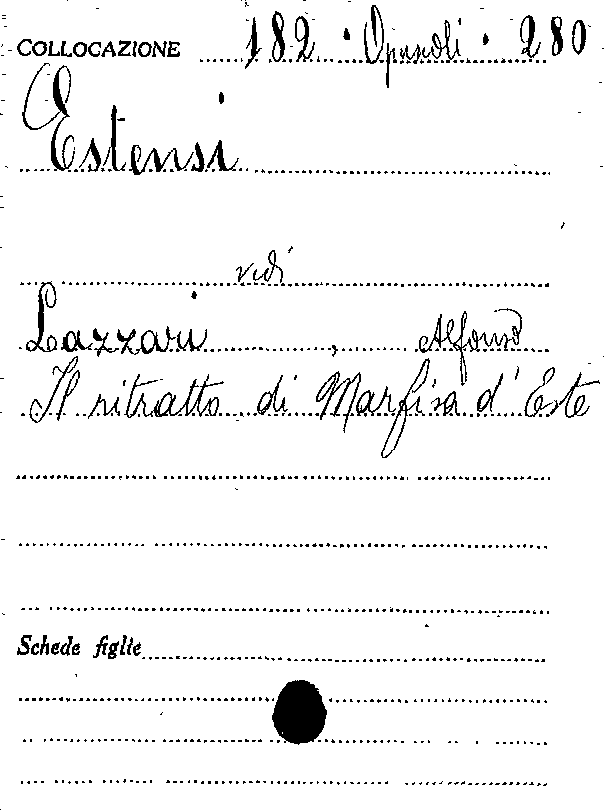 COLLOCAZIONE 182 · Opuscoli · 280
Estensi
vedi
Lazzari, Alfonso
Il ritratto di Marfisa d'Este
Schede figlie